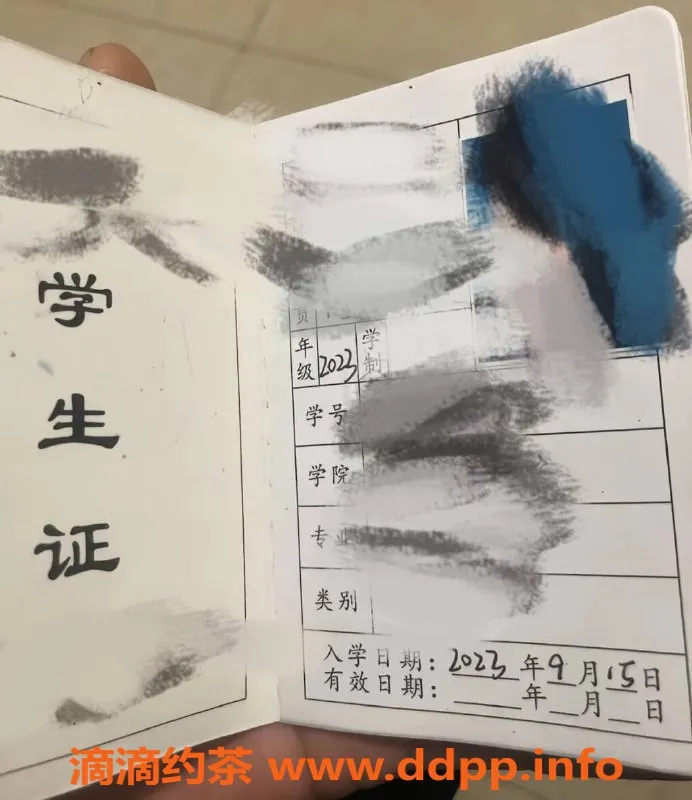 学
生
证
年级 2023 学制
学号
学院
专业
类别
入学日期：2023年9月15日
有效日期：____年__月__日
滴滴约茶 www.ddpp.info